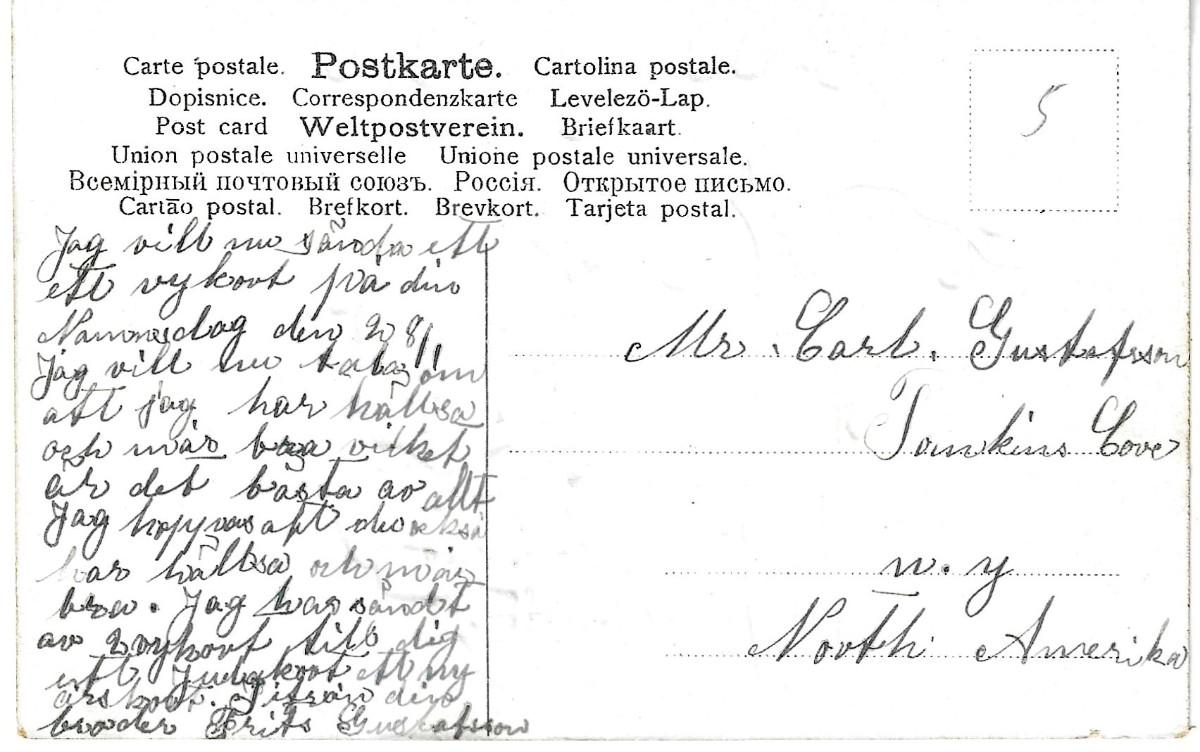 Carte postale. Postkarte. Cartolina postale.
Dopisnice. Correspondenzkarte Levelezö-Lap.
Post card Weltpostverein. Briefkaart.
Union postale universelle Unione postale universale.
Всемірный почтовый союзъ. Россія. Открытое письмо.
Cartāo postal. Brefkort. Brevkort. Tarjeta postal.
5
Jag vill nu sända ett
ett vykort på din
Namnesdag den 28/1
Jag vill nu tala om
att jag har hällsa
och mår bra vilket
är det bästa av allt
Jag hoppas att du också
har hällsa och mår
bra. Jag har sändt
av 2 vykort till dig
ett Julakort ett ny
årskort. från din
broder Frits Gustafsson
Mr. Carl. Gustafsson
Tomkins Cove
n. y
North Amerika